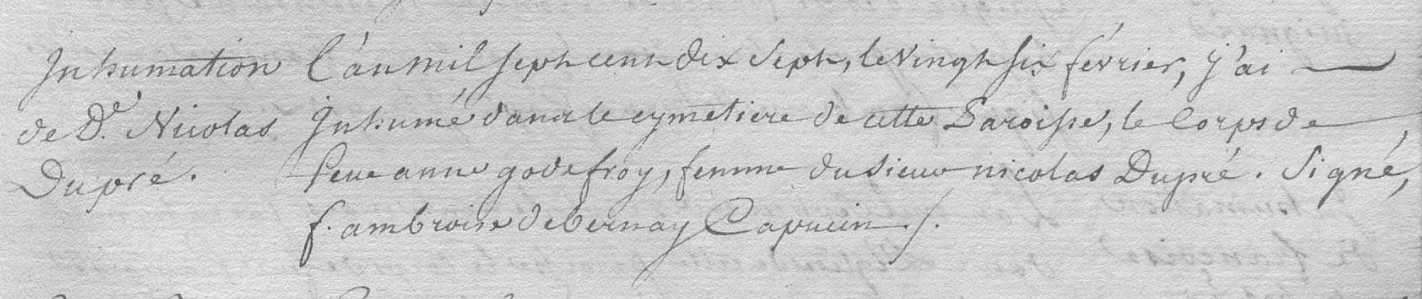 Inhumation L'an mil sept cent dix sept, le vingt six février, j'ai
de De. Nicolas Inhumé dans le cymetiere de cette Paroisse, le Corps de
Dupré. feue anne godefroy, femme du sieur nicolas Dupré. Signé,
f. ambroise de bernay Capucin ./.